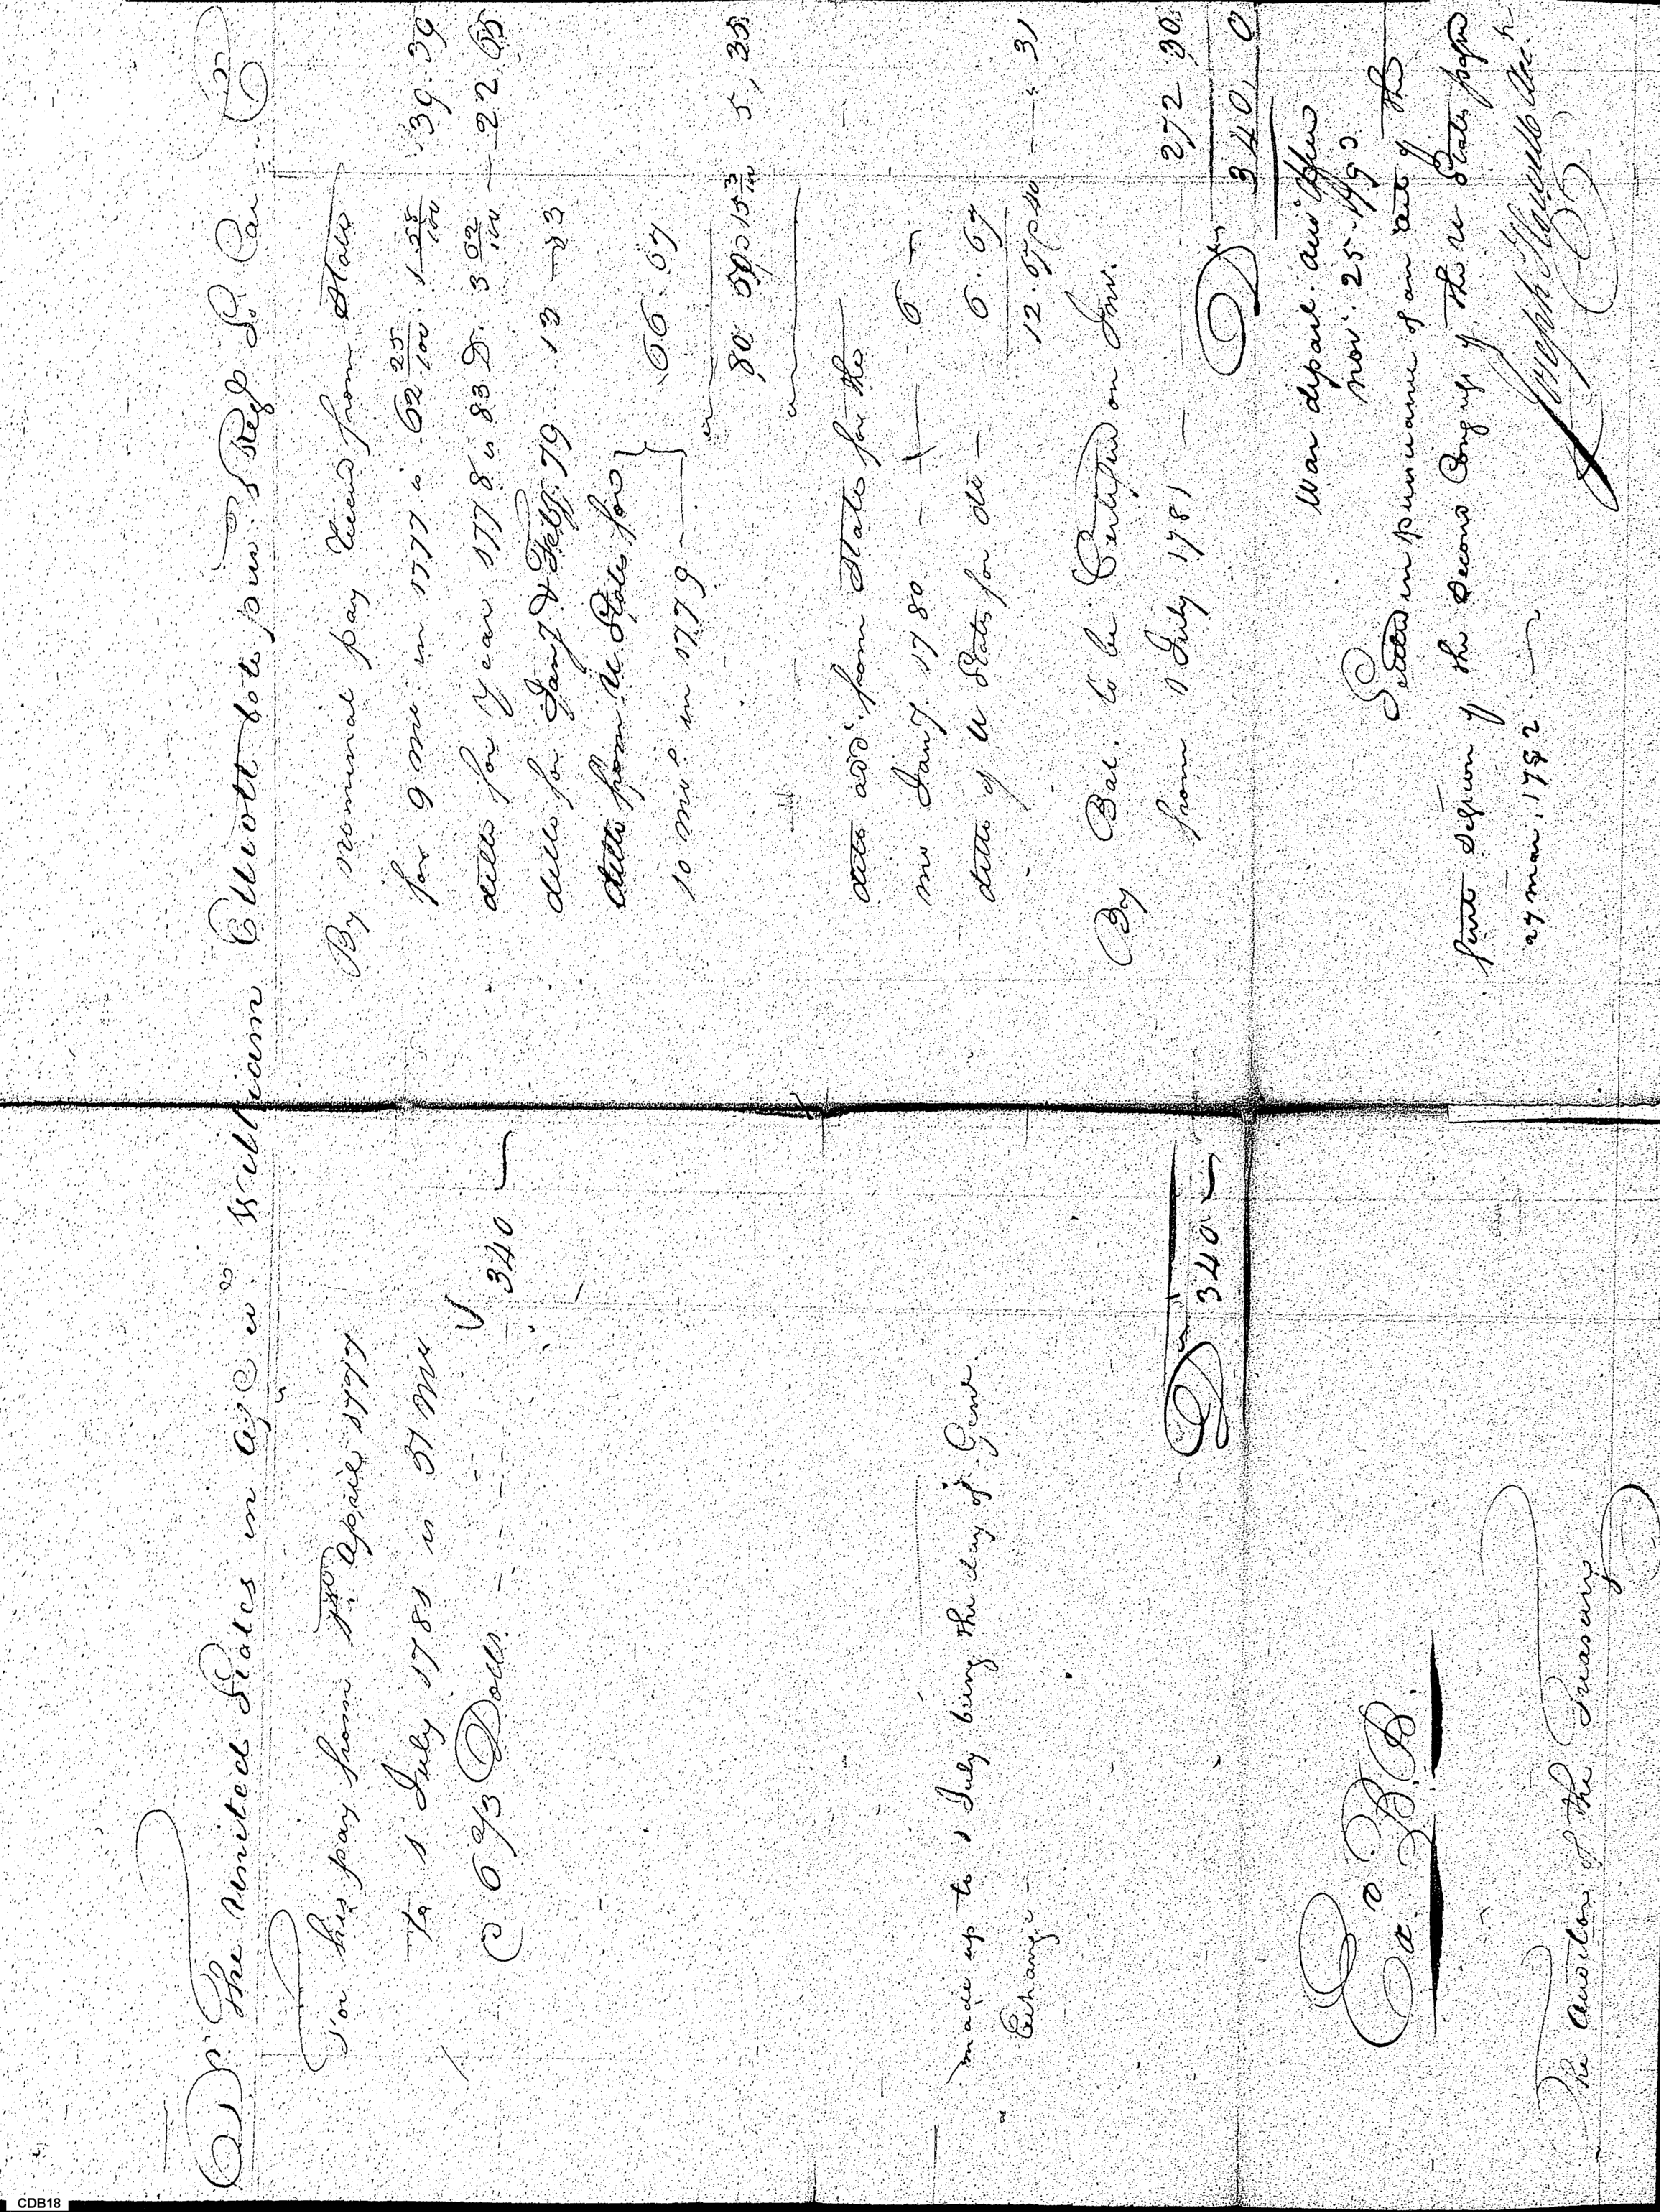 Dr. The United States in a/c wth William Elliott late priv. 1 Reg S. Car. Cr
For his pay from 1st April 1777
to 1 July 1781 is 51 mos
@ 6 2/3 Dolls. 340 —
made up to 1 July being the day of Genl.
Exchange —
Drs 340 —
E. E.
The Auditor of the Treasury
By nominal pay recd from State
for 9 mos. in 1777 is 62 25/100. 1 58/100 39.39
ditto for year 1778 is 83 D. 3 02/100 — 22.65
ditto for Jany & Feby. 79 13 — 33
ditto from U. States for
10 mos. in 1779 — 66.67
80 5,33
ditto add. from State for the
mo Jany. 1780 — 6 —
ditto of U States for do — 6.67
12.67 p 40 — ". 31
By Bal. to be Certified on Int.
from 1 July 1781 — 272 30
Drs 340, 0
War depart. aud Office
Nov. 25 1793
Settled in pursuance of an act of the
first session of the second Congress of the U States passed
27 mar. 1792 —
Joseph Howell Acct
CDB18